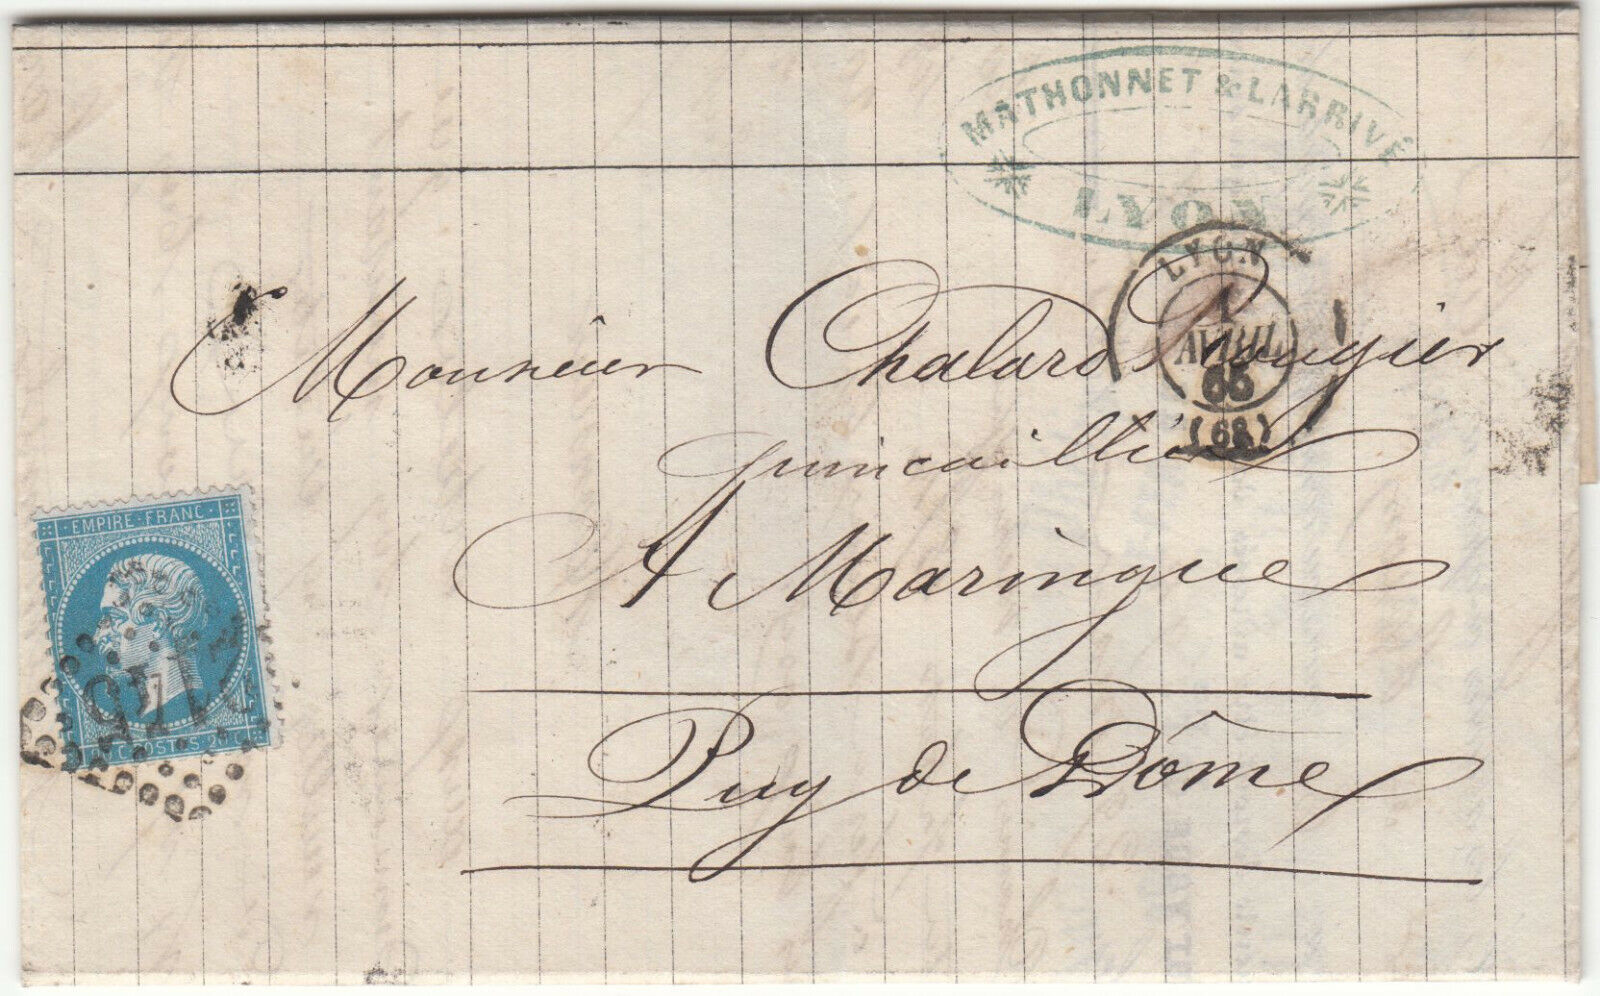 MATHONNET & LARRIVÉ
LYON
LYON
1
AVRIL
66
(68)
Monsieur Chalard Rougier
quincaillier
A Maringue
Puy de Dôme
EMPIRE FRANC
2145